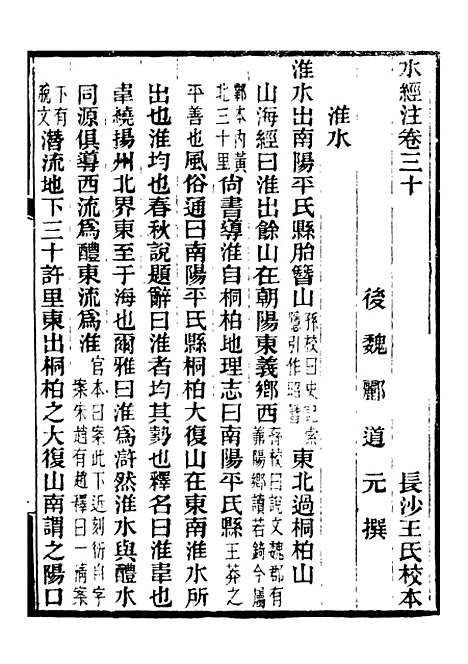 水經注卷三十
後魏酈道元撰 長沙王氏校本
淮水
淮水出南陽平氏縣胎簪山孫校曰史記索隱引作昭簪東北過桐柏山
山海經曰淮出餘山在朝陽東義鄉西孫校曰說文魏郡有義陽鄉讀若錡今屬鄴本內黃北三十里尚書導淮自桐柏地理志曰南陽平氏縣王莽之
平善也風俗通曰南陽平氏縣桐柏大復山在東南淮水所
出也淮均也春秋說題辭曰淮者均其勢也釋名曰淮韋也
韋繞揚州北界東至于海也爾雅曰淮為滸然淮水與醴水
同源俱導西流為醴東流為淮官本曰案此下近刻衍自字案朱趙有趙釋曰一清案下有脫文潛流地下三十許里東出桐柏之大復山南謂之陽口